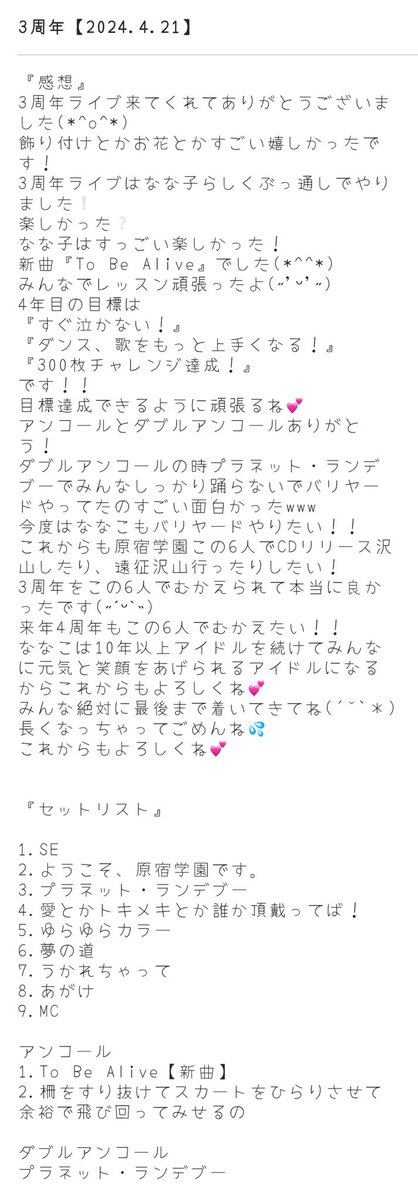 3周年【2024.4.21】
『感想』
3周年ライブ来てくれてありがとうございま
した(*^o^*)
飾り付けとかお花とかすごい嬉しかったで
す！
3周年ライブはなな子らしくぶっ通しでやり
ました❕
楽しかった❔
なな子はすっごい楽しかった！
新曲『To Be Alive』でした(*^^*)
みんなでレッスン頑張ったよ(˶ ̓ᵕ ̓˶)
4年目の目標は
『すぐ泣かない！』
『ダンス、歌をもっと上手くなる！』
『300枚チャレンジ達成！』
です！！
目標達成できるように頑張るね💕
アンコールとダブルアンコールありがと
う！
ダブルアンコールの時プラネット・ランデ
ブーでみんなしっかり踊らないでバリヤー
ドやってたのすごい面白かったwww
今度はななこもバリヤードやりたい！！
これからも原宿学園この6人でCDリリース沢
山したり、遠征沢山行ったりしたい！
3周年をこの6人でむかえられて本当に良か
ったです(˶´ᵕ`˶)
来年4周年もこの6人でむかえたい！！
ななこは10年以上アイドルを続けてみんな
に元気と笑顔をあげられるアイドルになる
からこれからもよろしくね💕
みんな絶対に最後まで着いてきてね(´˘`＊)
長くなっちゃってごめんね💦
これからもよろしくね💕
『セットリスト』
1.SE
2.ようこそ、原宿学園です。
3.プラネット・ランデブー
4.愛とかトキメキとか誰か頂戴ってば！
5.ゆらゆらカラー
6.夢の道
7.うかれちゃって
8.あがけ
9.MC
アンコール
1.To Be Alive【新曲】
2.柵をすり抜けてスカートをひらりさせて
余裕で飛び回ってみせるの
ダブルアンコール
プラネット・ランデブー